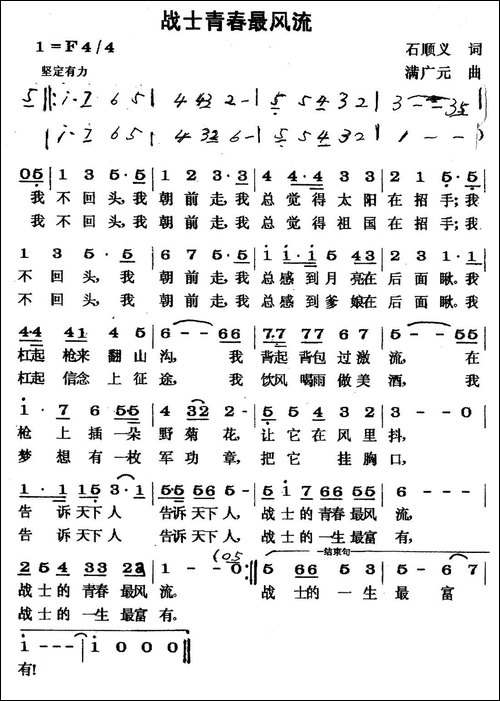 战士青春最风流
1=F 4/4
石顺义 词
坚定有力
满广元 曲
5 ‖: i· i 6 5 | 4 43 2 - | 5 5 4 3 2 | 3 - - 35 |
| i· i 6 5 | 4 432 6 - | 5· 5 4 3 2 | 1 - - |
05 | 1 3 5·5 | 1 2 3·3 | 4 4·4 3 3 | 2 1 5·5 |
我 不回头,我 朝前走,我 总觉得太阳在招手;我
我 不回头,我 朝前走,我 总觉得祖国在招手;我
1 3 5·5 | 6 7 5·5 | i i·i 5 43 | 2 3 1·1 |
不回头,我 朝前走,我 总感到月亮在后面瞅.我
不回头,我 朝前走,我 总感到爹娘在后面瞅.我
44 41 4 5 | 6 - - 66 | 77 77 6 7 | 5 - - 5 |
杠起枪来翻山沟, 我 背起背包过激流, 在
杠起信念上征途, 我 饮风喝雨做美酒, 我
i·7 6 55 | 4 32 2 - | 5 5 4 3 2 | 3 - - 0 |
枪上插一朵野菊花, 让它在风里抖,
梦想有一枚军功章, 把它挂胸口,
1·1 15 3·1 | 55 56 5 - | 5 i 7 66 5 5 | 6 - - - |
告诉天下人 告诉天下人, 战士的青春最风流,
告诉天下人 告诉天下人, 战士的一生最富有,
2 5 4 33 2 3 | 1 - - 0 :‖ 5 66 5 3 | 5 - 6 7 |
(05
结束句
战士的青春最风流. 战士的一生最富
战士的一生最富有.
i - - - | i 0 0 0 ‖
有!